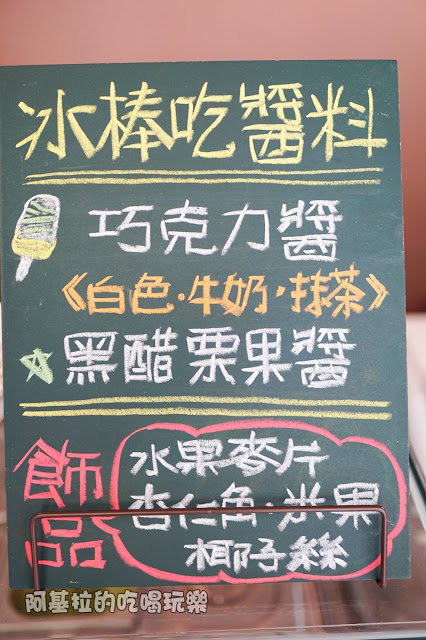 冰棒吃醬料
巧克力醬
《白色·牛奶,抹茶》
黑醋栗果醬
飾品
水果麥片
杏仁角·米果
椰子絲
阿基拉的吃喝玩樂